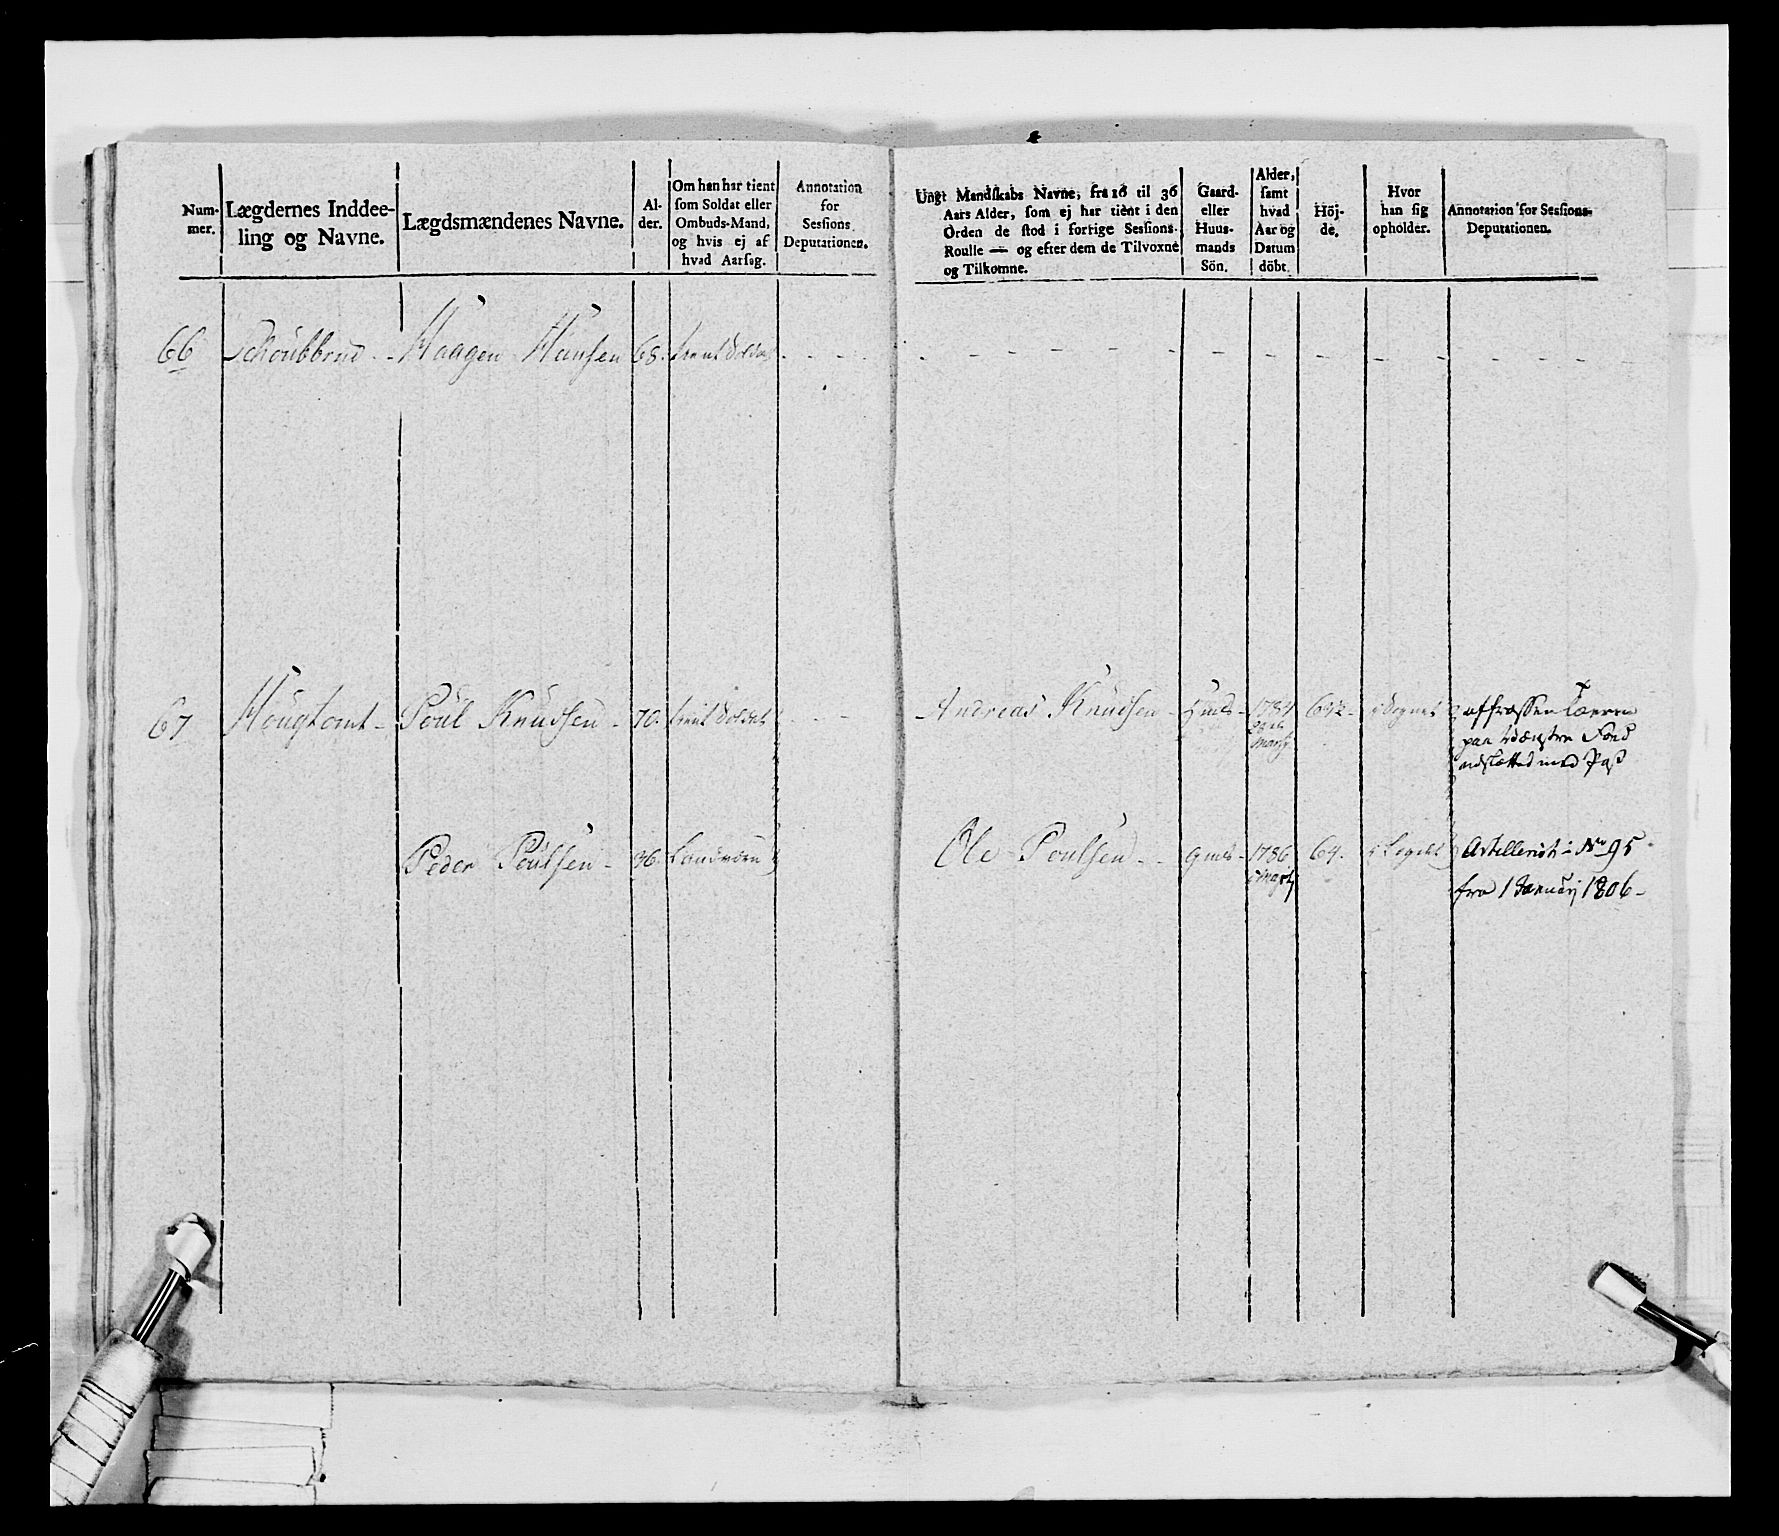 Num-
mer.
Lægdernes Inddee-
ling og Navne.
Lægdsmændenes Navne.
Al-
der.
Om han har tient
som Soldat eller
Ombuds-Mand,
og hvis ej af
hvad Aarsag.
Annotation
for
Sessions
Deputationen.
Ungt Mandskabs Navne, fra 16 til 36
Aars Alder, som ej har tient i den
Orden de stod i forrige Sessions-
Roulle — og efter dem de Tilvoxne
og Tilkomne.
Gaard-
eller
Huus-
mands
Sön.
Alder,
samt
hvad
Aar og
Datum
döbt.
Höj-
de.
Hvor
han sig
opholder.
Annotation for Sessions-
Deputationen.
66 Schoubbrud - Haagen Hansen 68. tient Soldat
67 Hougtomt - Poul Knudsen - 70. tient Soldat
Andreas Knudsen - Hmds - 1784 64½ - i Sognet
Martij
paa venstre Foed
udslettet med Pas
Peder Poulsen - 36. Landværn
Ole Poulsen - Gmds - 1786 64. i Lægdet Artillerist: No 95
Martij
fra 1 Januarij 1806 -